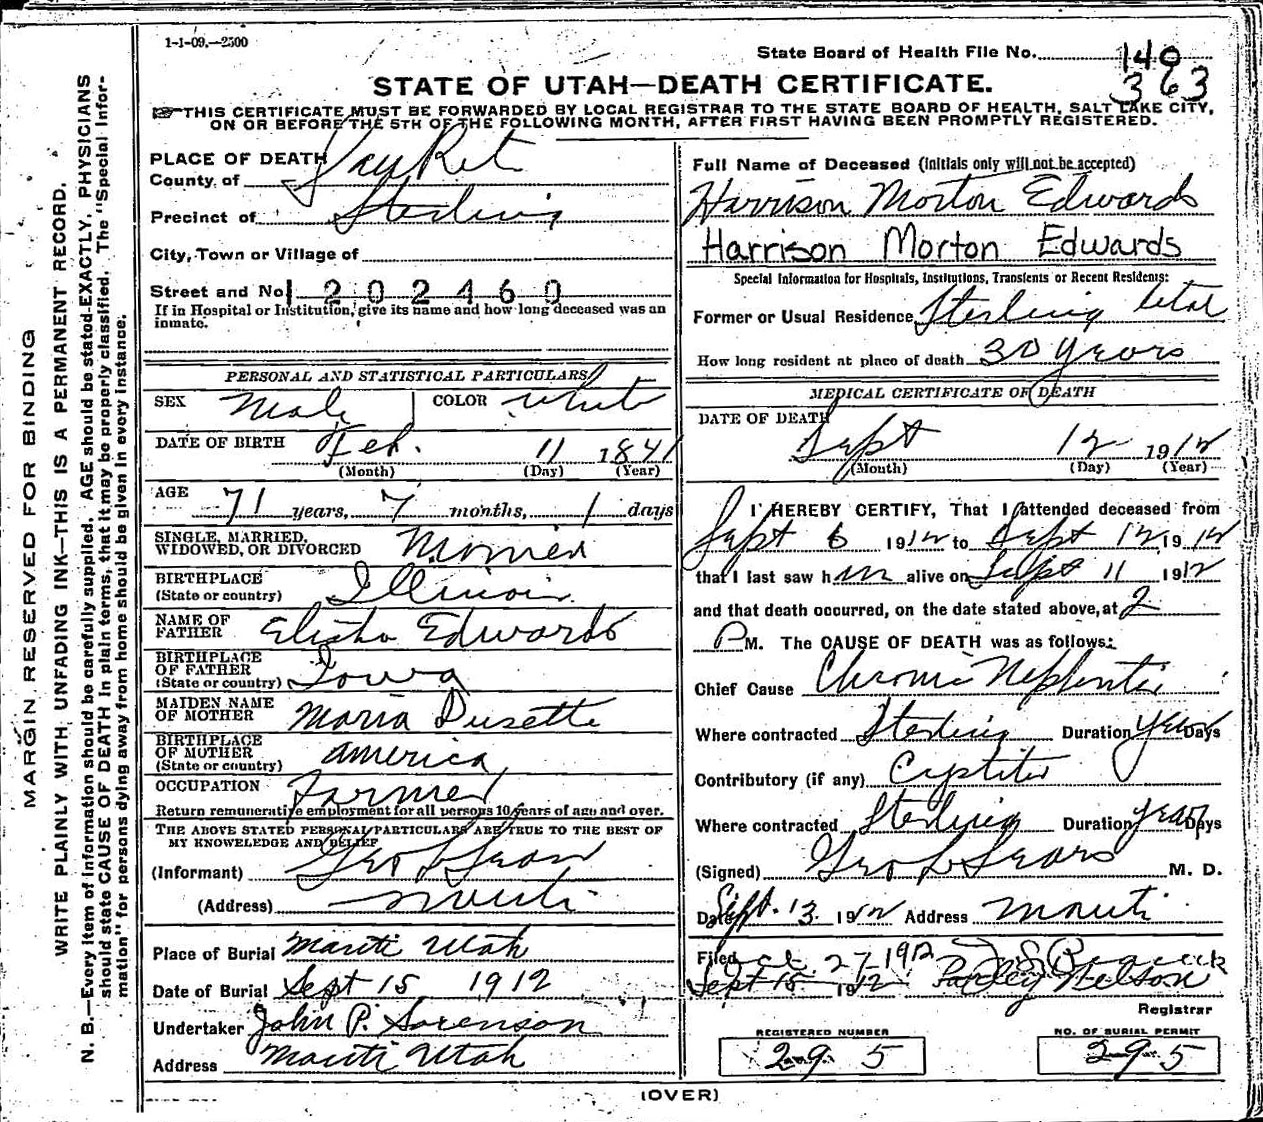 1-1-09.—2500
State Board of Health File No. 140
363
STATE OF UTAH—DEATH CERTIFICATE.
THIS CERTIFICATE MUST BE FORWARDED BY LOCAL REGISTRAR TO THE STATE BOARD OF HEALTH, SALT LAKE CITY,
ON OR BEFORE THE 5TH OF THE FOLLOWING MONTH, AFTER FIRST HAVING BEEN PROMPTLY REGISTERED.
MARGIN RESERVED FOR BINDING
WRITE PLAINLY WITH UNFADING INK—THIS IS A PERMANENT RECORD.
N. B.—Every item of information should be carefully supplied. AGE should be stated EXACTLY. PHYSICIANS
should state CAUSE OF DEATH in plain terms, that it may be properly classified. The "Special Infor-
mation" for persons dying away from home should be given in every instance.
PLACE OF DEATH
County of SanPet
Precinct of Sterling
City, Town or Village of
Street and No 1202460
If in Hospital or Institution, give its name and how long deceased was an
inmate.
PERSONAL AND STATISTICAL PARTICULARS
SEX Male COLOR White
DATE OF BIRTH Feb. 11 1841
(Month) (Day) (Year)
AGE 71 years, 7 months, 1 days
SINGLE, MARRIED,
WIDOWED, OR DIVORCED Married
BIRTHPLACE
(State or country) Illinois
NAME OF
FATHER Elisha Edwards
BIRTHPLACE
OF FATHER
(State or country) Iowa
MAIDEN NAME
OF MOTHER Maria Dusette
BIRTHPLACE
OF MOTHER
(State or country) America
OCCUPATION Farmer
Return remunerative employment for all persons 10 years of age and over.
THE ABOVE STATED PERSONAL PARTICULARS ARE TRUE TO THE BEST OF
MY KNOWLEDGE AND BELIEF
(Informant) Geo L Sears
(Address) Manti
Place of Burial Manti Utah
Date of Burial Sept 15 1912
Undertaker John P. Sorenson
Address Manti Utah
Full Name of Deceased (Initials only will not be accepted)
Harrison Morton Edwards
Harrison Morton Edwards
Special Information for Hospitals, Institutions, Transients or Recent Residents:
Former or Usual Residence Sterling Utah
How long resident at place of death 30 years
MEDICAL CERTIFICATE OF DEATH
DATE OF DEATH
Sept 12 1912
(Month) (Day) (Year)
I HEREBY CERTIFY, That I attended deceased from
Sept 6 1912 to Sept 12 1912
that I last saw him alive on Sept 11 1912
and that death occurred, on the date stated above, at 2
P M. The CAUSE OF DEATH was as follows:
Chief Cause Chronic Nephritis
Where contracted Sterling Duration years Days
Contributory (if any) Cystitis
Where contracted Sterling Duration years Days
(Signed) Geo L Sears M. D.
Date Sept. 13 1912 Address Manti
Filed 27 1912
Sept 15 1912 Parley Nelson
Registrar
REGISTERED NUMBER
295
NO. OF BURIAL PERMIT
295
(OVER)